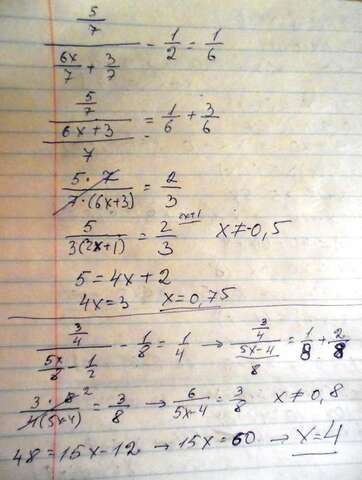 5/7 / (6x/7 + 3/7) - 1/2 = 1/6
5/7 / ((6x+3)/7) = 1/6 + 3/6
5 · 7 / (7·(6x+3)) = 2/3
5 / (3(2x+1)) = 2/3 x≠-0,5
5 = 4x + 2
4x = 3 x = 0,75
3/4 / (5x/8 - 1/2) - 1/8 = 1/4 → 3/4 / ((5x-4)/8) = 1/8 + 2/8
3 · 8 2 / (4(5x-4)) = 3/8 → 6/(5x-4) = 3/8 x≠0,8
48 = 15x - 12 → 15x = 60 → x = 4